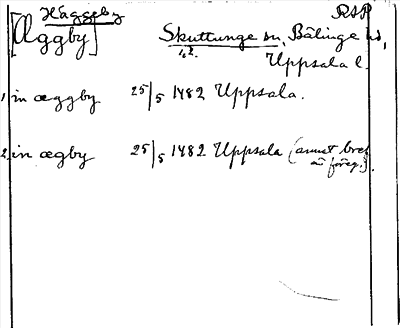 Häggeby RSP
[Æggby] Skuttunge sn, Bälinge hd,
1,2.
Uppsala l.
1, in æggby 25/5 1482 Uppsala.
2, in ægby 25/5 1482 Uppsala (annat bref
än föreg.).